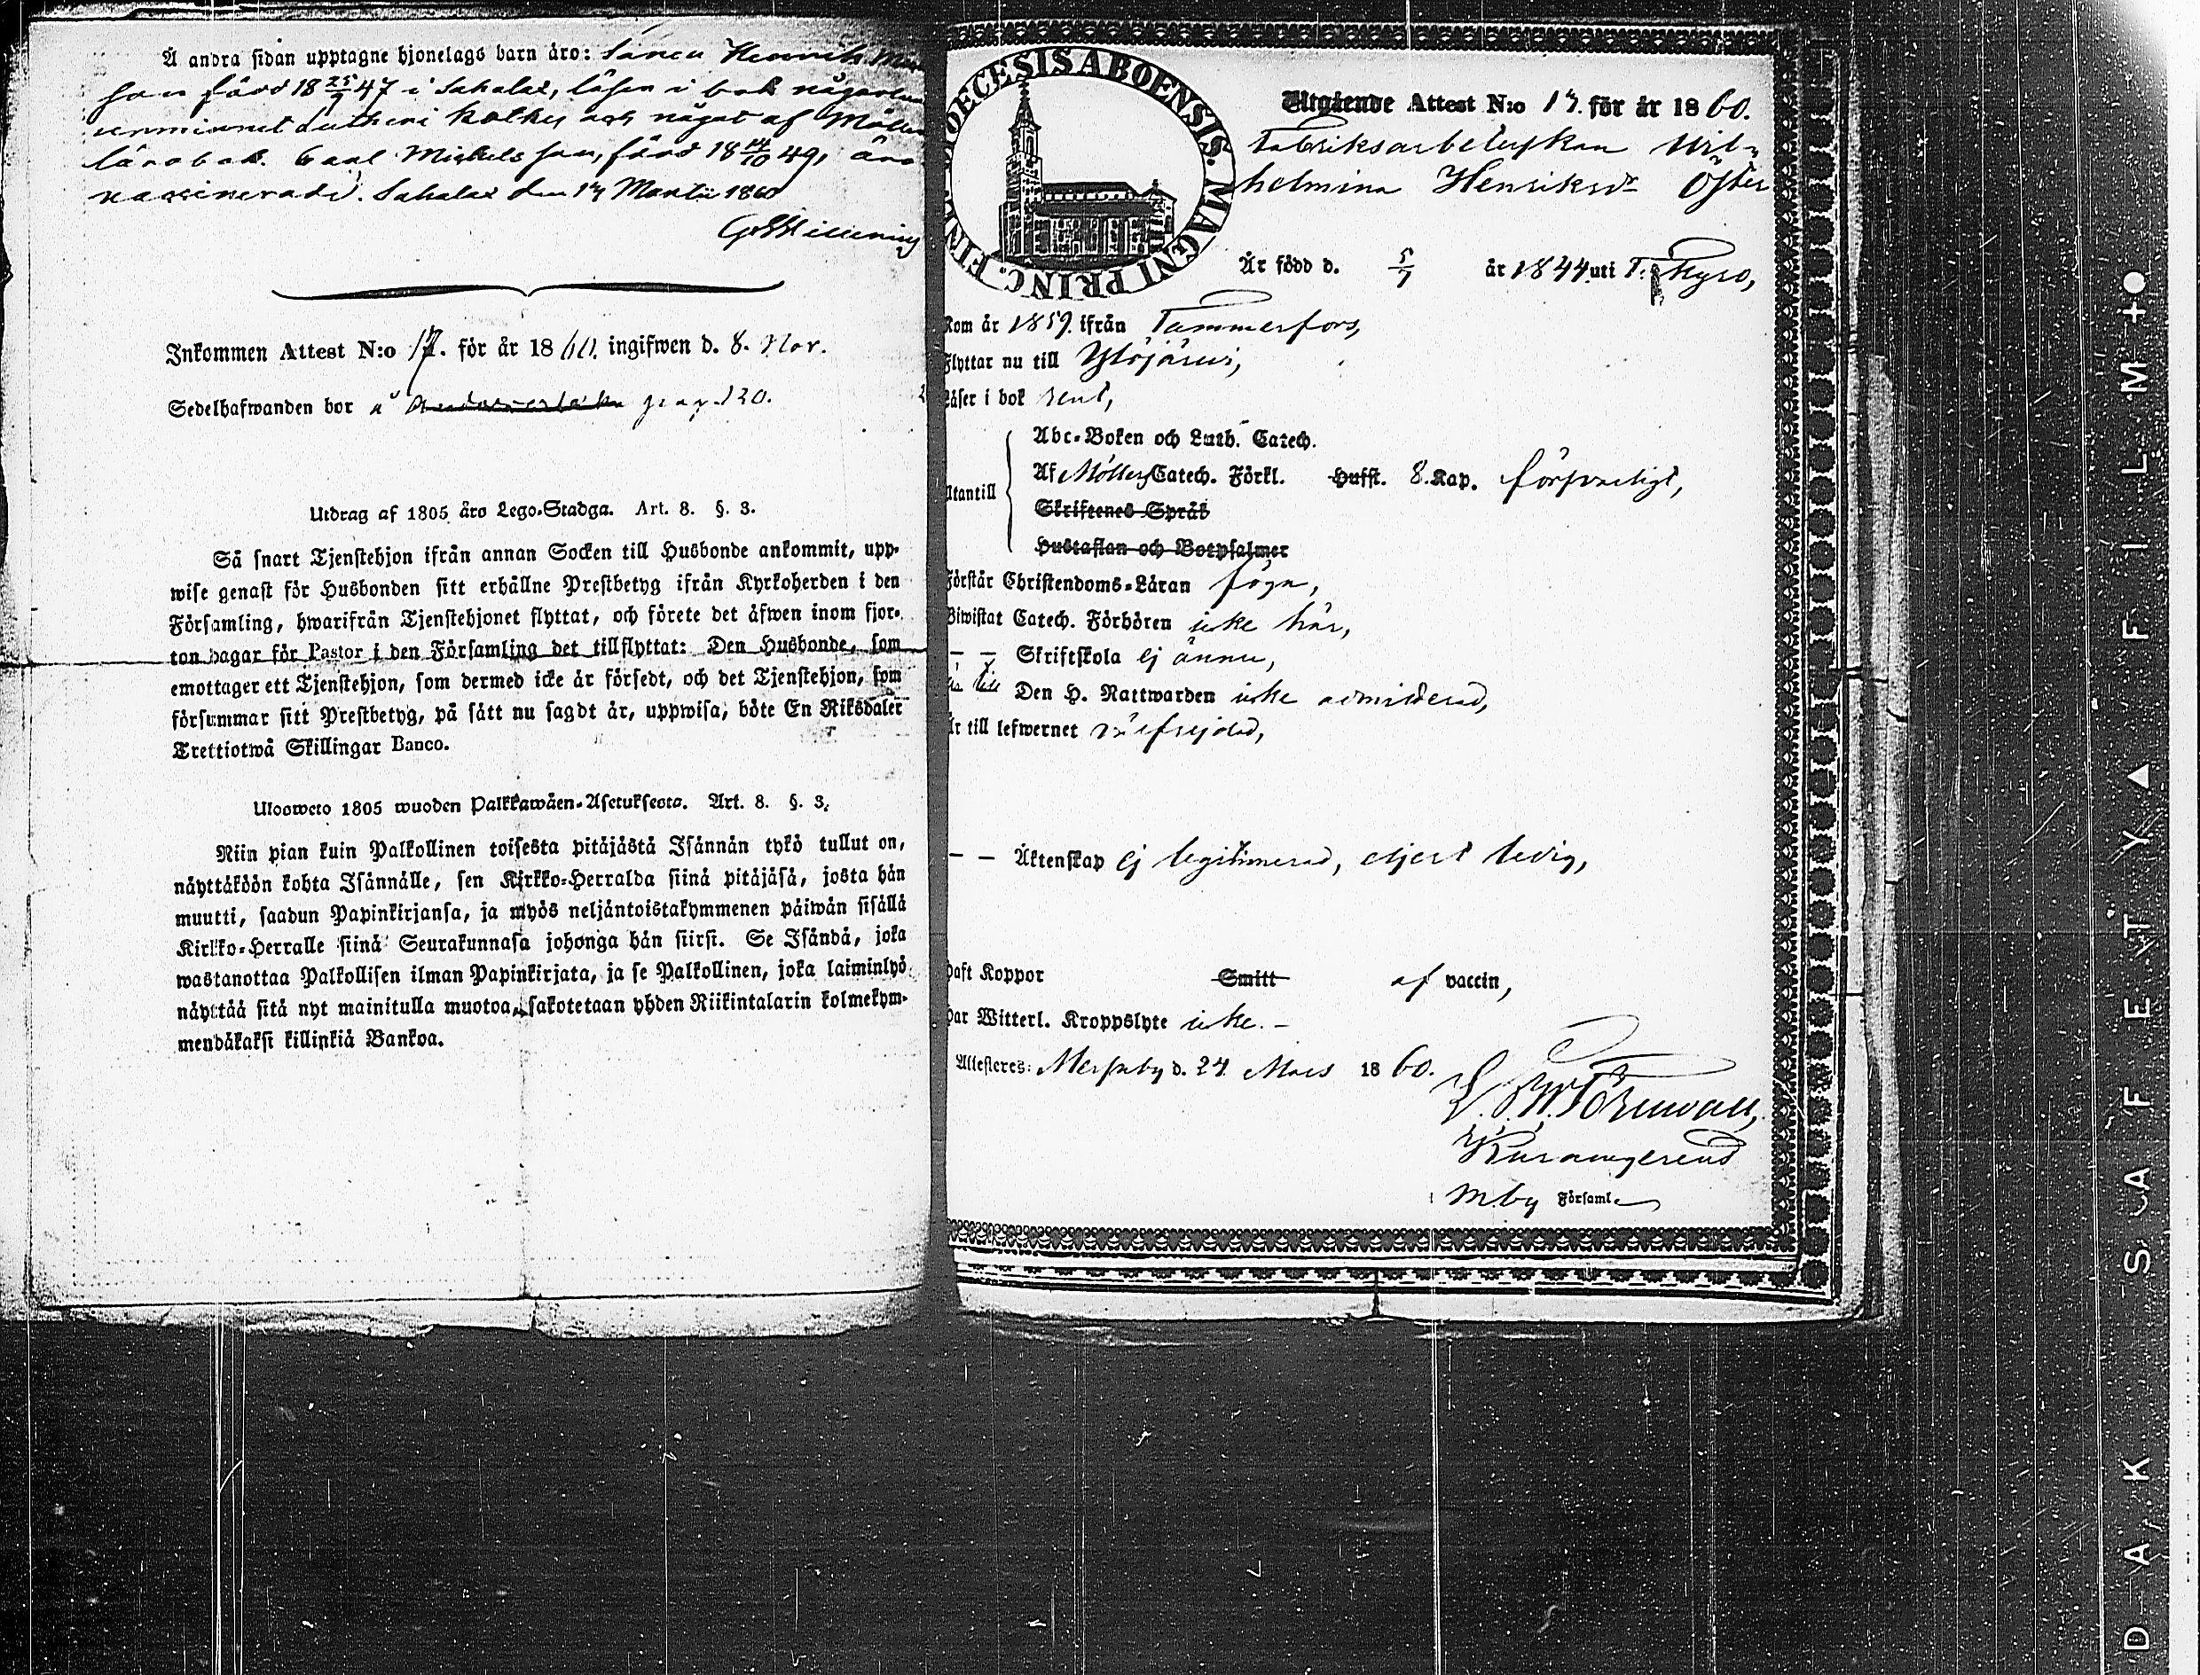 Å andra sidan upptagne hjonelags barn äro: Sonen Henrik
son född 18 25/9 47 i Sahalax, läser i bok någorlunda
utminnet Lutheri kathes och något af Möllers
lärobok. Carl Mickelsson, född 18 14/10 49, äro
vaccinerade. Sahalax den 17 Martii 1860
Inkommen Attest N:o 17. för år 1860. ingifwen d. 8. Nov.
Sedelhafwanden bor å pag. 120.
Utdrag af 1805 åro Lego-Stadga. Art. 8. §. 3.
Så snart Tjenstehjon ifrån annan Socken till Husbonde ankommit, upp-
wise genast för Husbonden sitt erhållne Prestbetyg ifrån Kyrkoherden i den
Församling, hwarifrån Tjenstehjonet flyttat, och förete det äfwen inom fjor-
ton dagar för Pastor i den Församling det tillflyttat: Den Husbonde, som
emottager ett Tjenstehjon, som dermed icke är försedt, och det Tjenstehjon, som
försummar sitt Prestbetyg, på sätt nu sagdt är, uppwisa, böte En Riksdaler
Trettiotwå Skillingar Banco.
Ulosweto 1805 wuoden Palkkawäen-Asetuksesta. Art. 8. §. 3.
Niin pian kuin Palkollinen toisesta pitäjästä Isännän tykö tullut on,
näyttäköön kohta Isännälle, sen Kirkko-Herralda siinä pitäjäsä, josta hän
muutti, saadun Papinkirjansa, ja myös neljäntoistakymmenen päiwän sisällä
Kirkko-Herralle siinä Seurakunnasa johonga hän siirsi. Se Isändä, joka
wastanottaa Palkollisen ilman Papinkirjata, ja se Palkollinen, joka laiminlyö
näyttää sitä nyt mainitulla muotoa, sakotetaan yhden Riikintalarin kolmekym-
mendäkaksi killinkiä Bankoa.
DIOECESIS ABOENSIS. MAGNI PRINC. FINL.
Utgående Attest N:o 17. för år 1860.
Fabriksarbeterskan Wil-
helmina Henriksdr Öster
Är född d. 5/7 år 1844 uti T. Kyro,
Kom år 1859. ifrån Tammerfors,
Flyttar nu till Ylöjärwi,
Läser i bok rent,
Utantill
Abc-Boken och Luth. Catech.
Af Möllers Catech. Förkl. Hufst. 8. Kap. försvarligt,
Skriftenes Språk
Hustaflan och Botpsalmer
Förstår Christendoms-Läran föga,
Biwistat Catech. Förhören icke här,
— — Skriftskola ej ännu,
till Den H. Nattwarden icke admitterad,
Är till lefwernet välfrejdad,
— — Äktenskap ej legitimerad, eljest ledig,
Haft Koppor Smitt af vaccin,
Har Witterl. Kroppslyte icke. —
Attesteres: Messuby d. 24. Mars 1860.
L. J. W. Törnwall,
i M.by Församl.
DAK-SAFETY FILM